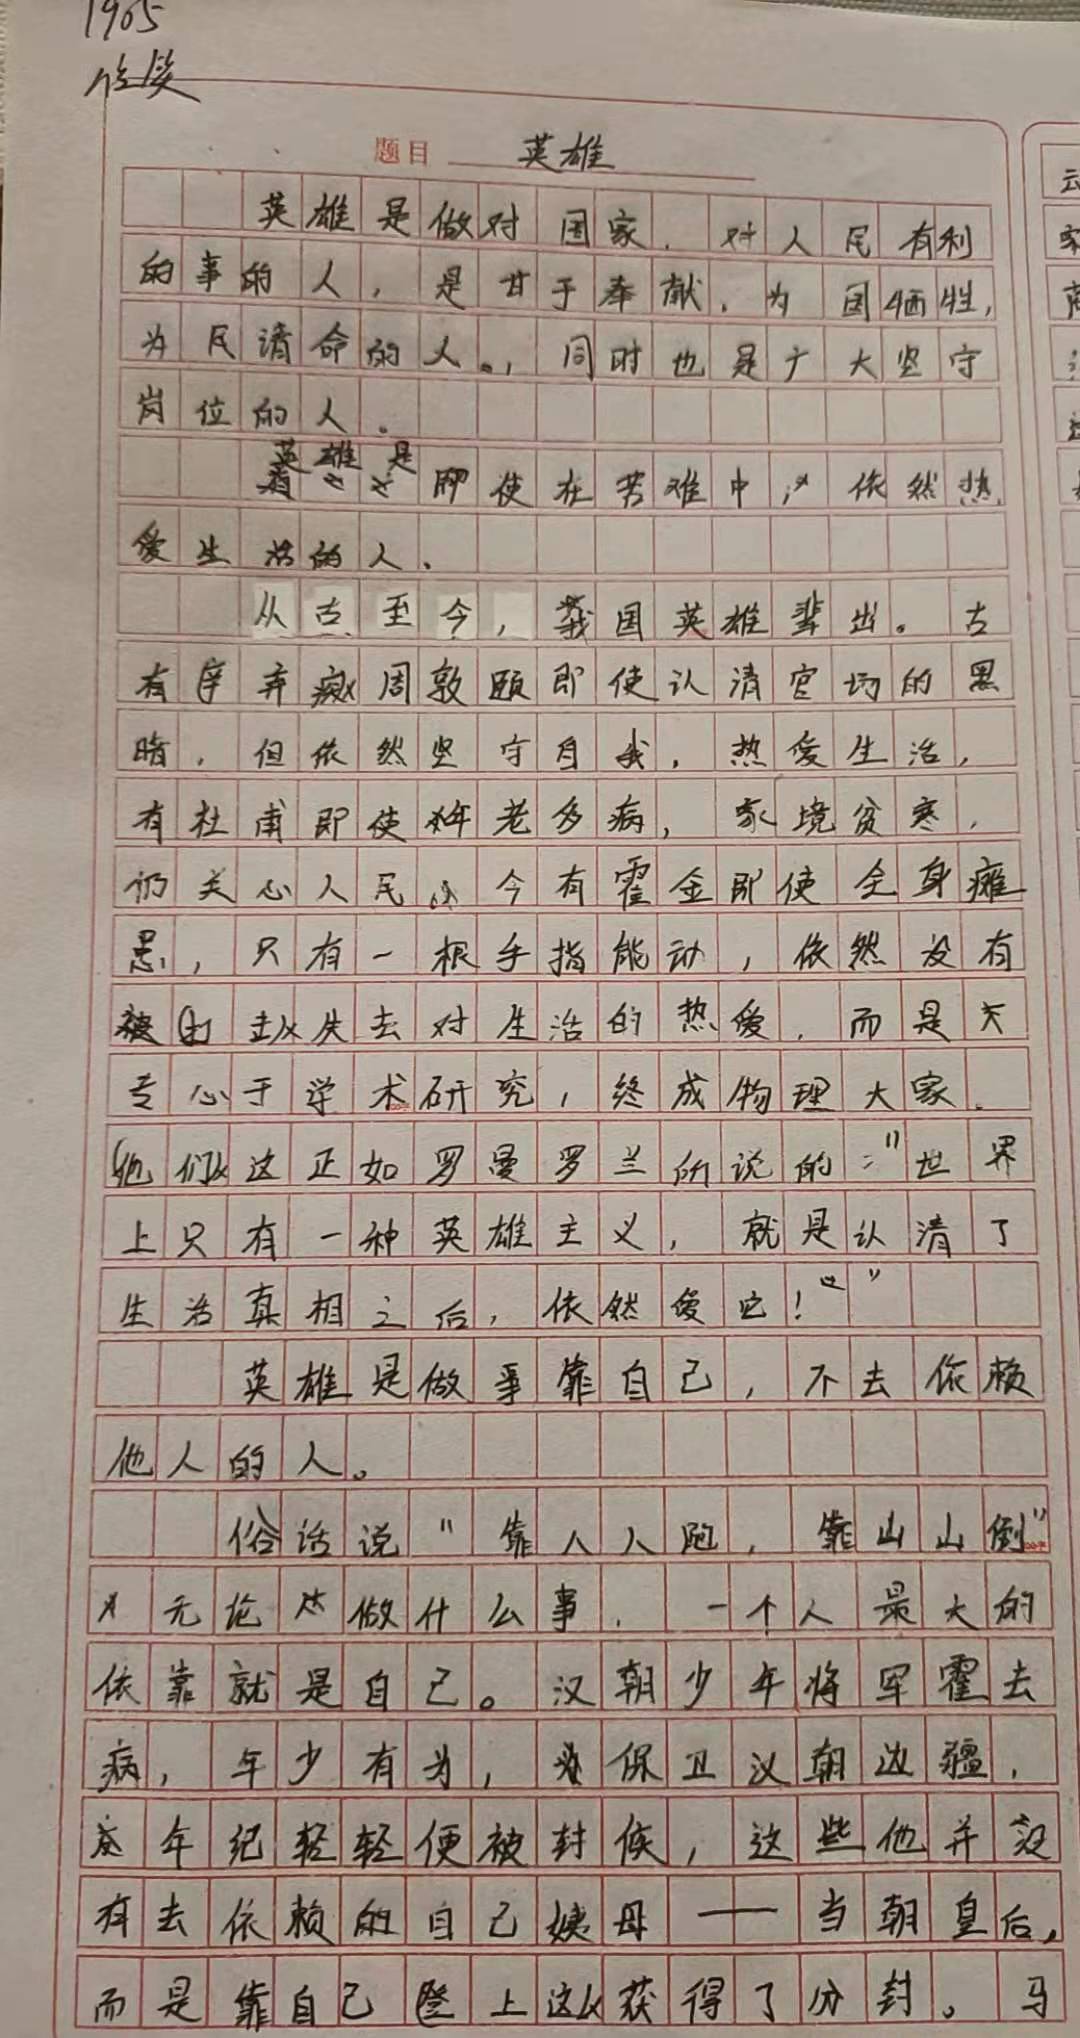 1905
题目 英雄
英雄是做对国家、对人民有利
的事的人，是甘于奉献、为国牺牲，
为民请命的人。，同时也是广大坚守
岗位的人。
英雄是
即使在苦难中，依然热
爱生活的人。
从古至今，我国英雄辈出。古
有辛弃疾周敦颐即使认清官场的黑
暗，但依然坚守自我，热爱生活，
有杜甫即使年老多病，家境贫寒，
仍关心人民。今有霍金即使全身瘫
患，只有一根手指能动，依然没有
被失去对生活的热爱，而是
专心于学术研究，终成物理大家。
他们这正如罗曼罗兰所说的："世界
上只有一种英雄主义，就是认清了
生活真相之后，依然爱它！"
英雄是做事靠自己，不去依赖
他人的人。
俗话说"靠人人跑，靠山山倒"
无论做什么事，一个人最大的
依靠就是自己。汉朝少年将军霍去
病，年少有为，保卫汉朝边疆，
年纪轻轻便被封候，这些他并没
有去依赖的自己姨母——当朝皇后，
而是靠自己登上这获得了分封。马